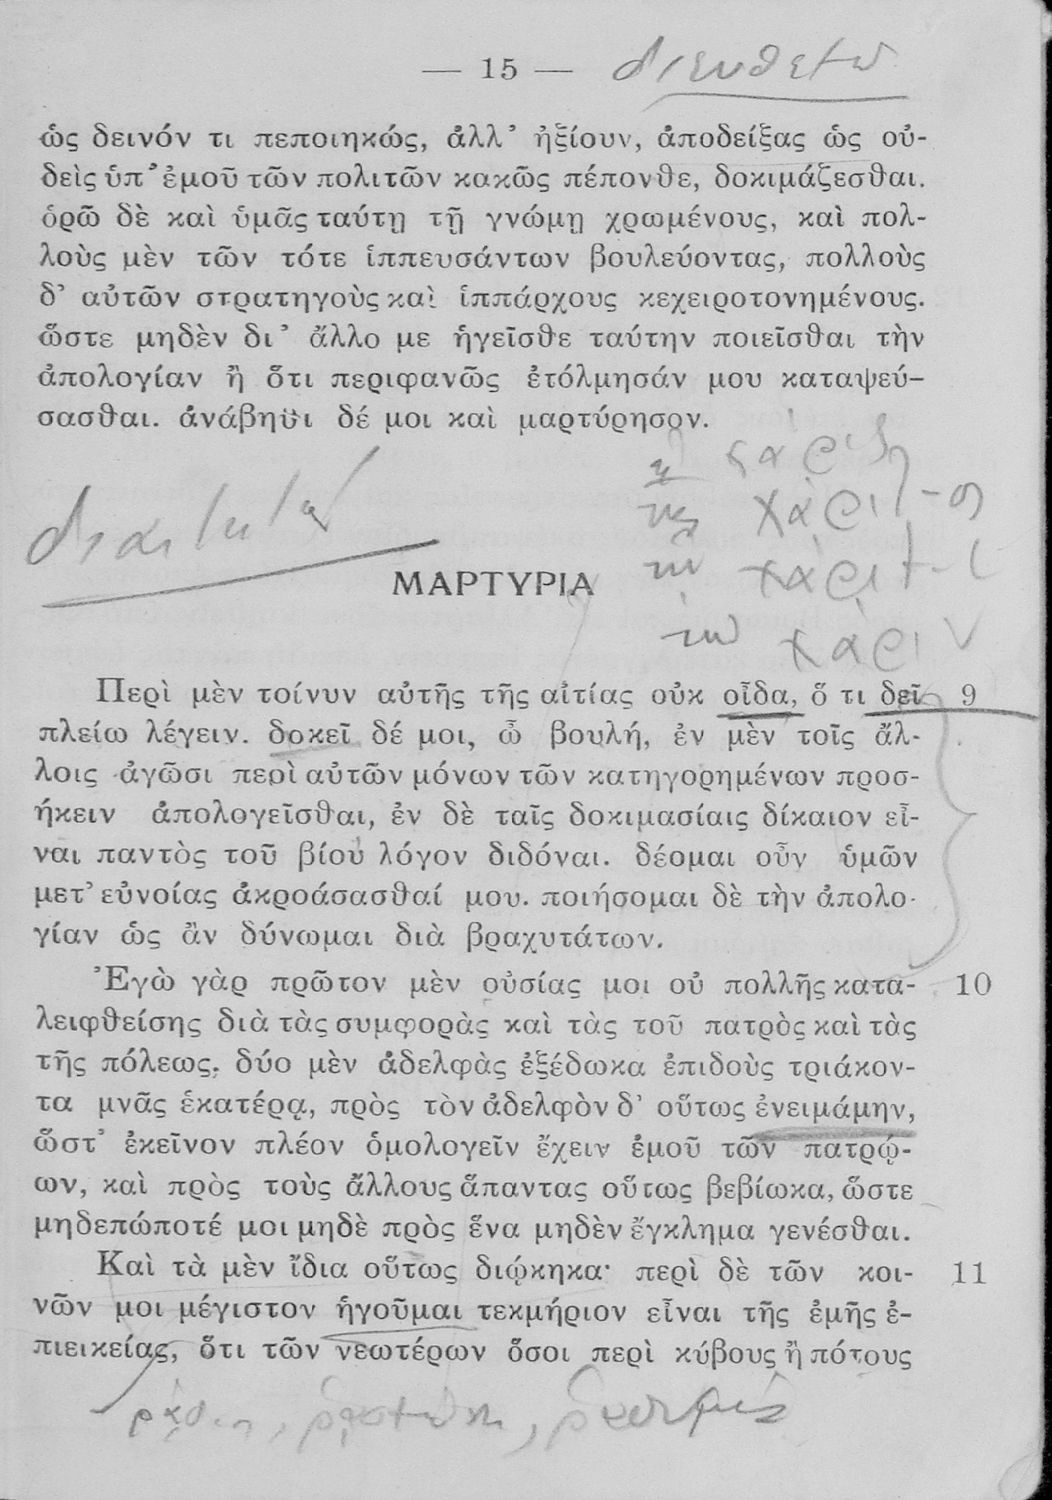 — 15 — διευθετῶ
ὡς δεινόν τι πεποιηκώς, ἀλλ’ ἠξίουν, ἀποδείξας ὡς οὐ-
δεὶς ὑπ’ ἐμοῦ τῶν πολιτῶν κακῶς πέπονθε, δοκιμάζεσθαι.
ὁρῶ δὲ καὶ ὑμᾶς ταύτῃ τῇ γνώμῃ χρωμένους, καὶ πολ-
λοὺς μὲν τῶν τότε ἱππευσάντων βουλεύοντας, πολλοὺς
δ’ αὐτῶν στρατηγοὺς καὶ ἱππάρχους κεχειροτονημένους.
ὥστε μηδὲν δι’ ἄλλο με ἡγεῖσθε ταύτην ποιεῖσθαι τὴν
ἀπολογίαν ἢ ὅτι περιφανῶς ἐτόλμησάν μου καταψεύ-
σασθαι. ἀνάβηθι δέ μοι καὶ μαρτύρησον.
χάριτ-ος
χάριτ-ι
χάριν
ΜΑΡΤΥΡΙΑ
Περὶ μὲν τοίνυν αὐτῆς τῆς αἰτίας οὐκ οἶδα, ὅ τι δεῖ 9
πλείω λέγειν. δοκεῖ δέ μοι, ὦ βουλή, ἐν μὲν τοῖς ἄλ-
λοις ἀγῶσι περὶ αὐτῶν μόνων τῶν κατηγορημένων προσ-
ήκειν ἀπολογεῖσθαι, ἐν δὲ ταῖς δοκιμασίαις δίκαιον εἶ-
ναι παντὸς τοῦ βίου λόγον διδόναι. δέομαι οὖν ὑμῶν
μετ’ εὐνοίας ἀκροάσασθαί μου. ποιήσομαι δὲ τὴν ἀπολο-
γίαν ὡς ἂν δύνωμαι διὰ βραχυτάτων.
Ἐγὼ γὰρ πρῶτον μὲν οὐσίας μοι οὐ πολλῆς κατα- 10
λειφθείσης διὰ τὰς συμφορὰς καὶ τὰς τοῦ πατρὸς καὶ τὰς
τῆς πόλεως, δύο μὲν ἀδελφὰς ἐξέδωκα ἐπιδοὺς τριάκον-
τα μνᾶς ἑκατέρᾳ, πρὸς τὸν ἀδελφὸν δ’ οὕτως ἐνειμάμην,
ὥστ’ ἐκεῖνον πλέον ὁμολογεῖν ἔχειν ἐμοῦ τῶν πατρῴ-
ων, καὶ πρὸς τοὺς ἄλλους ἅπαντας οὕτως βεβίωκα, ὥστε
μηδεπώποτέ μοι μηδὲ πρὸς ἕνα μηδὲν ἔγκλημα γενέσθαι.
Καὶ τὰ μὲν ἴδια οὕτως διῴκηκα· περὶ δὲ τῶν κοι- 11
νῶν μοι μέγιστον ἡγοῦμαι τεκμήριον εἶναι τῆς ἐμῆς ἐ-
πιεικείας, ὅτι τῶν νεωτέρων ὅσοι περὶ κύβους ἢ πότους